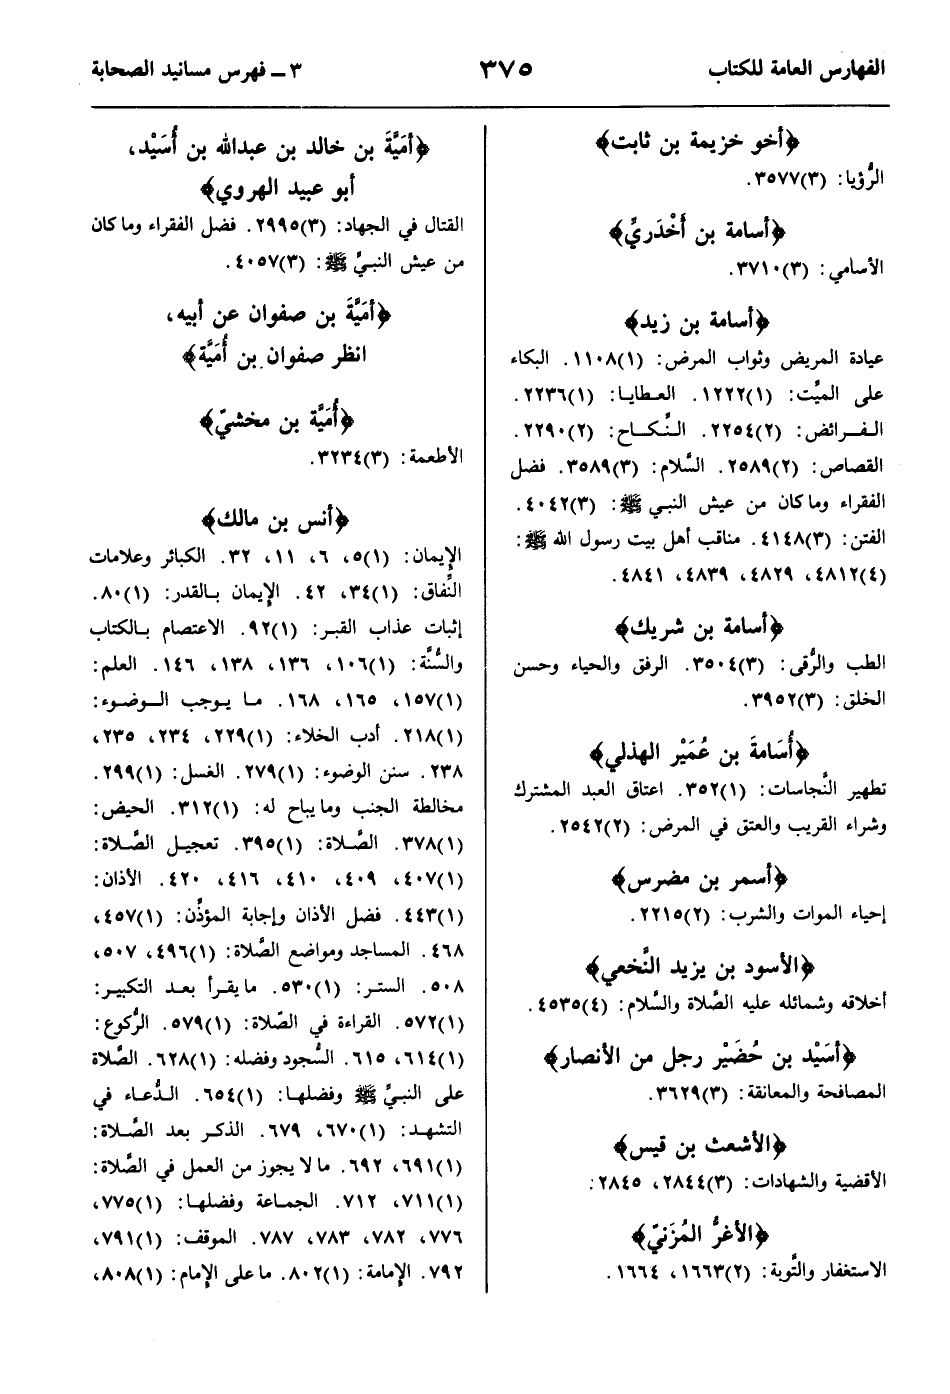 الفهارس العامة للكتاب ٣٧٥ ٣ ــ فهرس مسانيد الصحابة
﴿أخو خزيمة بن ثابت﴾
الرُّؤيا: (٣)٣٥٧٧.
﴿أسامة بن أَخْدَريِّ﴾
الأسامي: (٣)٣٧١٠.
﴿أسامة بن زيد﴾
عيادة المريض وثواب المرض: (١)١١٠٨. البكاء
على الميِّت: (١)١٢٢٢. العطايا: (١)٢٢٣٦.
الفرائض: (٢)٢٢٥٤. النِّكاح: (٢)٢٢٩٠.
القصاص: (٢)٢٥٨٩. السَّلام: (٣)٣٥٨٩. فضل
الفقراء وما كان من عيش النبي ﷺ: (٣)٤٠٤٢.
الفتن: (٣)٤١٤٨. مناقب أهل بيت رسول الله ﷺ:
(٤)٤٨١٢، ٤٨٢٩، ٤٨٣٩، ٤٨٤١.
﴿أسامة بن شريك﴾
الطب والرُّقى: (٣)٣٥٠٤. الرفق والحياء وحسن
الخلق: (٣)٣٩٥٢.
﴿أُسَامةَ بن عُمَيْر الهذلي﴾
تطهير النَّجاسات: (١)٣٥٢. اعتاق العبد المشترك
وشراء القريب والعتق في المرض: (٢)٢٥٤٢.
﴿أسمر بن مضرس﴾
إحياء الموات والشرب: (٢)٢٢١٥.
﴿الأسود بن يزيد النَّخعي﴾
أخلاقه وشمائله عليه الصَّلاة والسَّلام: (٤)٤٥٣٥.
﴿أسَيْد بن حُضَيْر رجل من الأنصار﴾
المصافحة والمعانقة: (٣)٣٦٢٩.
﴿الأشعث بن قيس﴾
الأقضية والشهادات: (٣)٢٨٤٤، ٢٨٤٥.
﴿الأغرُّ المُزَنيّ﴾
الاستغفار والتَّوبة: (٢)١٦٦٣، ١٦٦٤.
﴿أمَيَّةَ بن خالد بن عبدالله بن أُسَيْد،
أبو عبيد الهروي﴾
القتال في الجهاد: (٣)٢٩٩٥. فضل الفقراء وما كان
من عيش النبيِّ ﷺ: (٣)٤٠٥٧.
﴿أمَيَّةَ بن صفوان عن أبيه،
انظر صفوان بن أُمَيَّة﴾
﴿أُمَيَّة بن مخشيّ﴾
الأطعمة: (٣)٣٢٣٤.
﴿أنس بن مالك﴾
الإيمان: (١)٥، ٦، ١١، ٣٢. الكبائر وعلامات
النِّفاق: (١)٣٤، ٤٢. الإيمان بالقدر: (١)٨٠.
إثبات عذاب القبر: (١)٩٢. الاعتصام بالكتاب
والسُّنَّة: (١)١٠٦، ١٣٦، ١٣٨، ١٤٦. العلم:
(١)١٥٧، ١٦٥، ١٦٨. ما يوجب الوضوء:
(١)٢١٨. أدب الخلاء: (١)٢٢٩، ٢٣٤، ٢٣٥،
٢٣٨. سنن الوضوء: (١)٢٧٩. الغسل: (١)٢٩٩.
مخالطة الجنب وما يباح له: (١)٣١٢. الحيض:
(١)٣٧٨. الصَّلاة: (١)٣٩٥. تعجيل الصَّلاة:
(١)٤٠٧، ٤٠٩، ٤١٠، ٤١٦، ٤٢٠. الأذان:
(١)٤٤٣. فضل الأذان وإجابة المؤذِّن: (١)٤٥٧،
٤٦٨. المساجد ومواضع الصَّلاة: (١)٤٩٦، ٥٠٧،
٥٠٨. الستر: (١)٥٣٠. ما يقرأ بعد التكبير:
(١)٥٧٢. القراءة في الصّلاة: (١)٥٧٩. الرُّكوع:
(١)٦١٤، ٦١٥. السُّجود وفضله: (١)٦٢٨. الصَّلاة
على النبيِّ ﷺ وفضلها: (١)٦٥٤. الدُّعاء في
التشهد: (١)٦٧٠، ٦٧٩. الذكر بعد الصَّلاة:
(١)٦٩١، ٦٩٢. ما لا يجوز من العمل في الصَّلاة:
(١)٧١١، ٧١٢. الجماعة وفضلها: (١)٧٧٥،
٧٧٦، ٧٨٢، ٧٨٣، ٧٨٧. الموقف: (١)٧٩١،
٧٩٢. الإمامة: (١)٨٠٢. ما على الإمام: (١)٨٠٨،